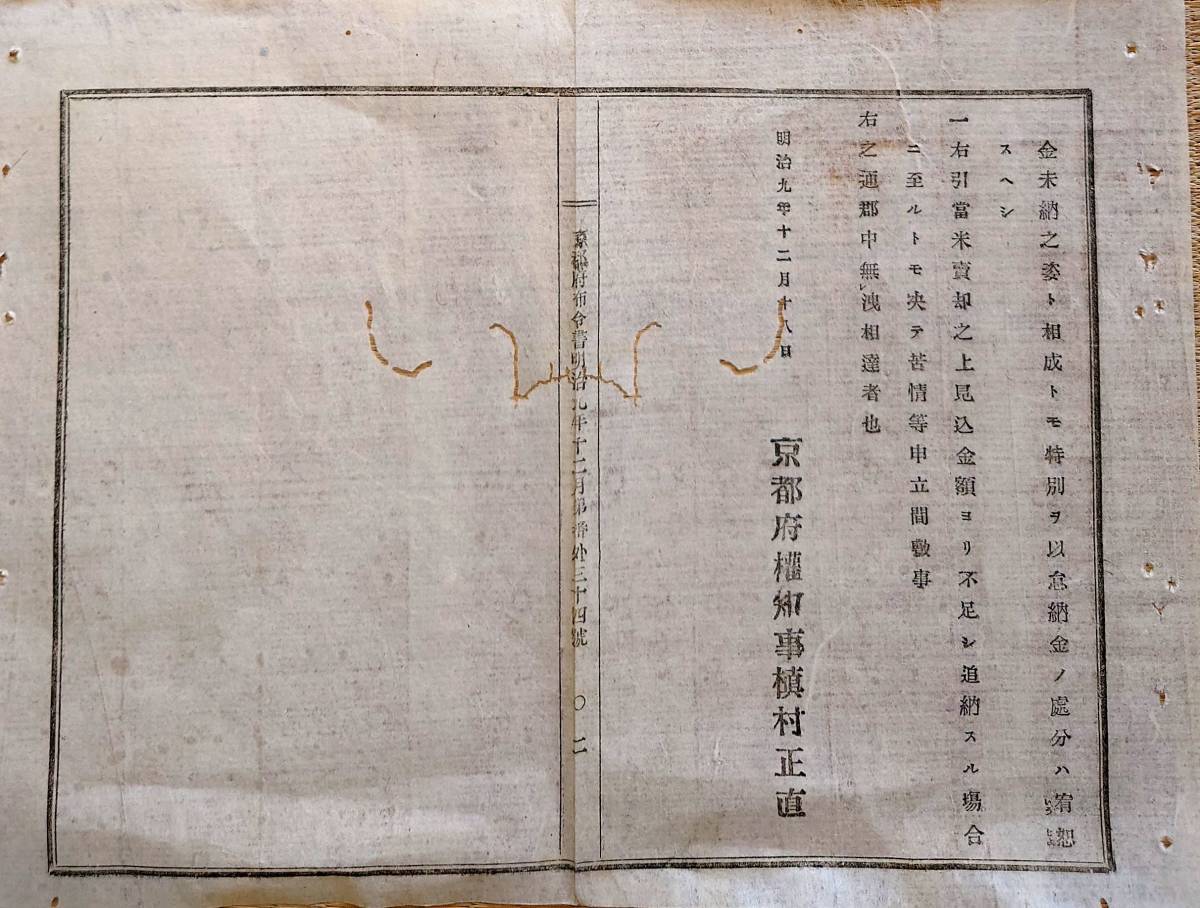 金未納之姿ト相成トモ特別ヲ以怠納金ノ處分ハ宥恕
スヘシ
一右引當米賣却之上見込金額ヨリ不足シ追納スル塲合
ニ至ルトモ决テ苦情等申立間敷事
右之通郡中無洩相達者也
明治九年十二月十八日
京都府權知事槇村正直
京都府布令書明治九年十二月第番外三十四號 〇二